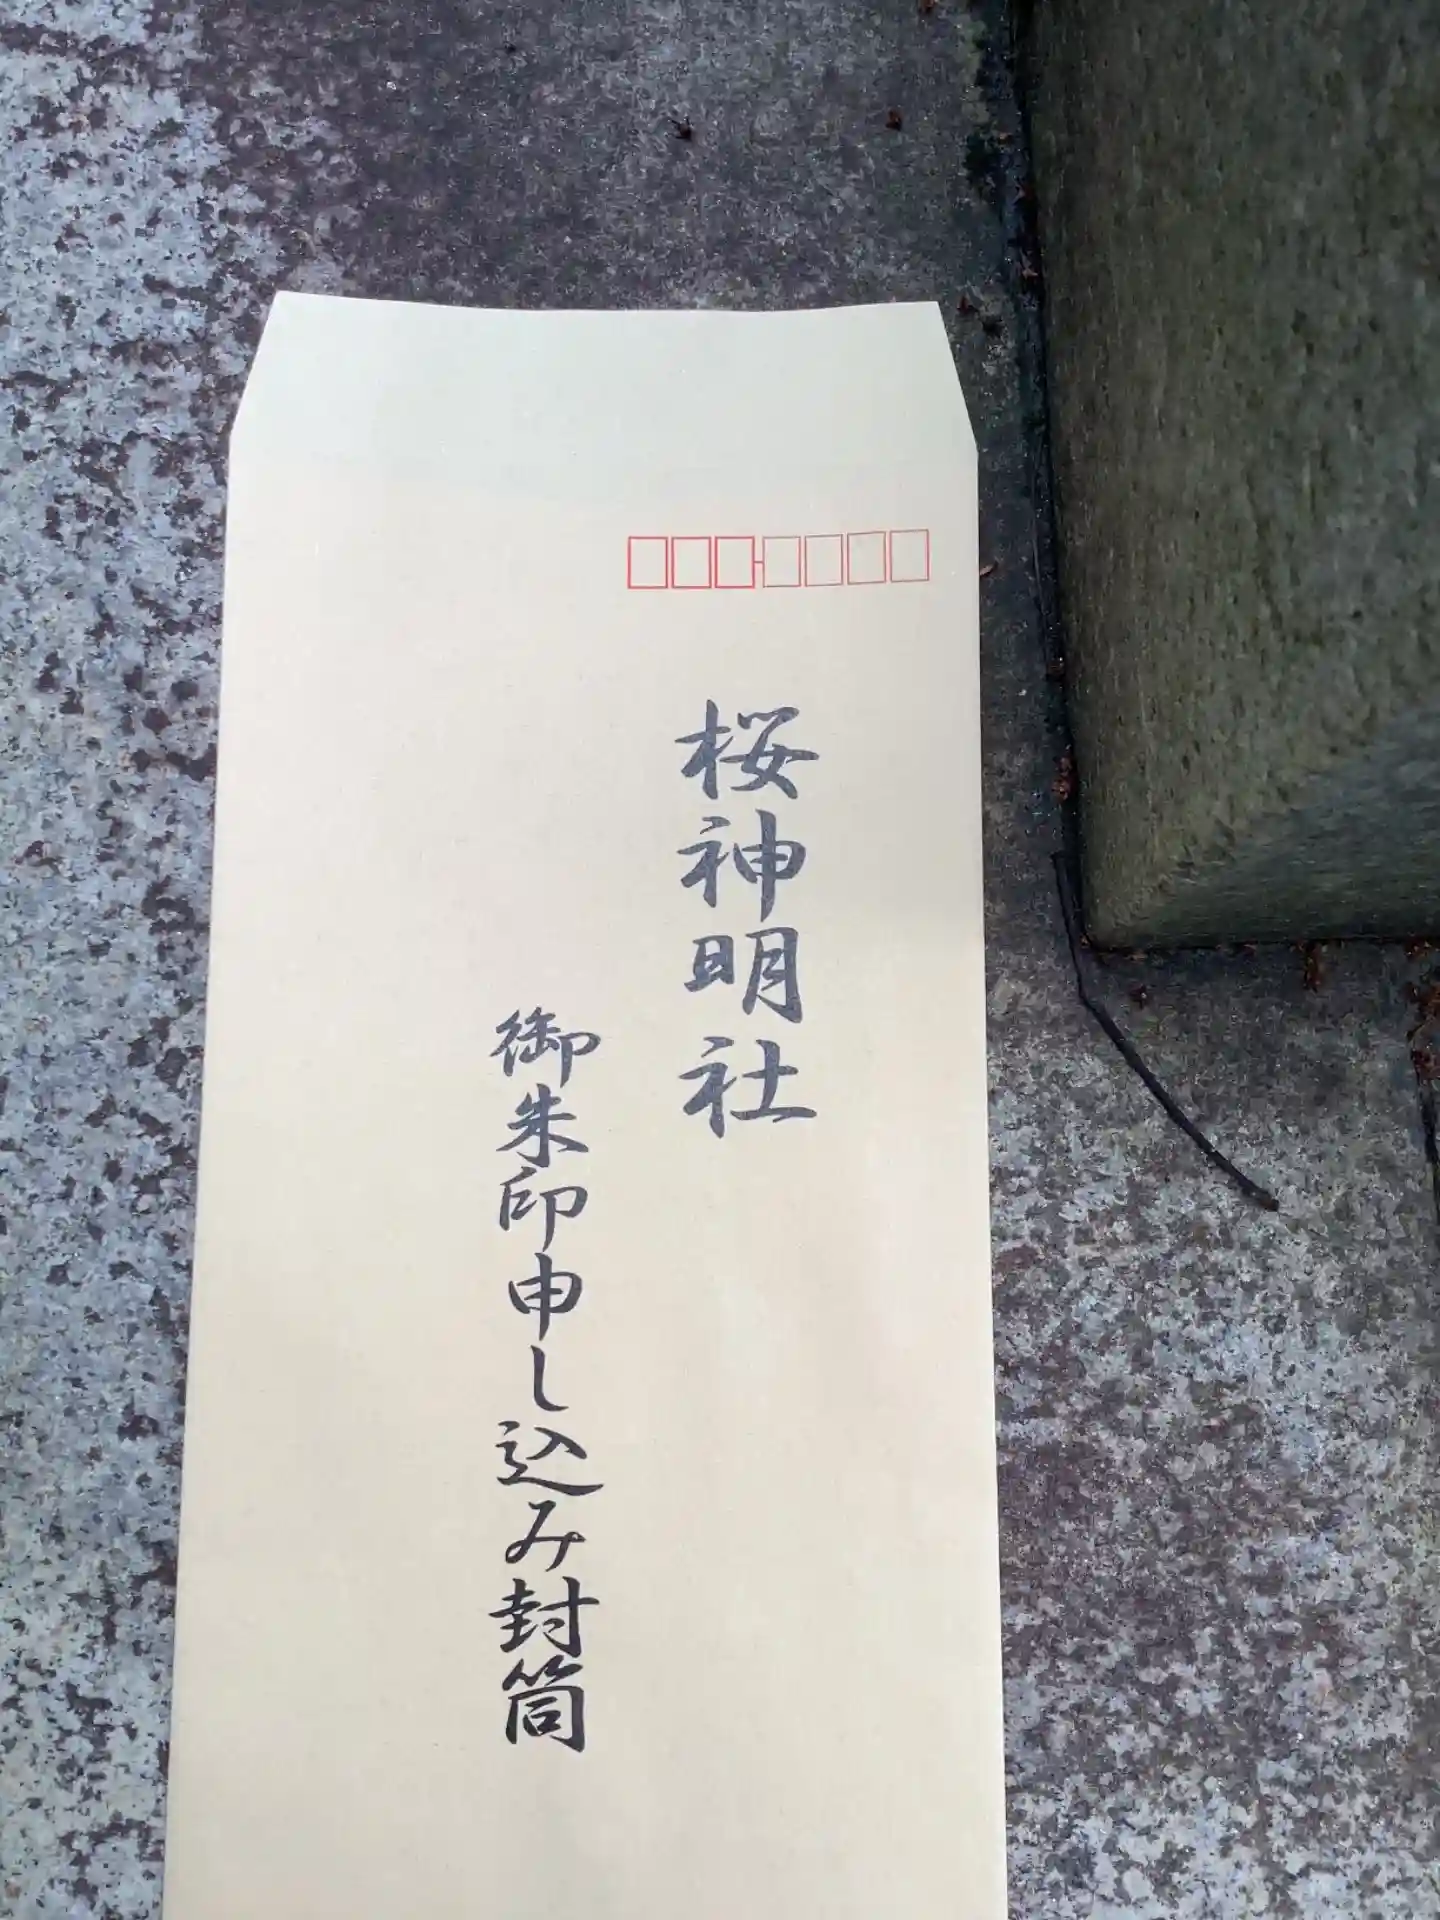 桜神明社
御朱印申し込み封筒